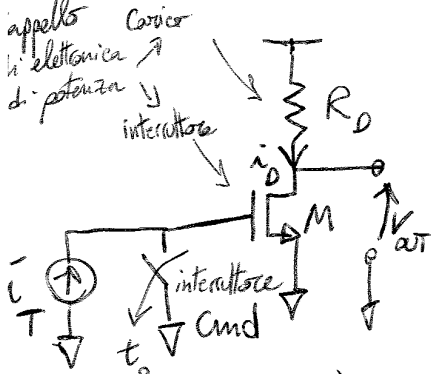 appello
di elettronica
di potenza
Carico
interruttore
R_D
i_D
M
V_OUT
interruttore
i_T
Cmd
t_0